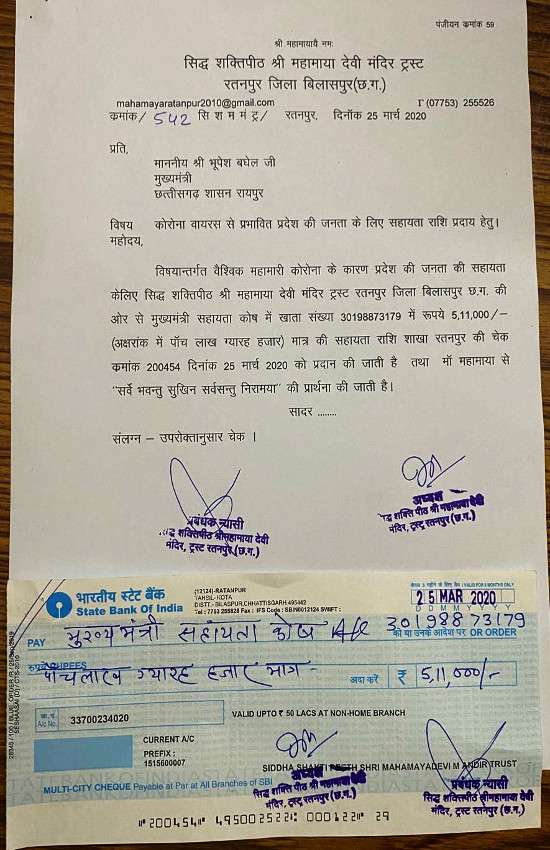 पंजीयन कमांक 59
श्री महामायायै नमः
सिद्ध शक्तिपीठ श्री महामाया देवी मंदिर ट्रस्ट
रतनपुर जिला बिलासपुर(छ.ग.)
mahamayaratanpur2010@gmail.com Г (07753) 255526
कमांक/ 542 सि श म मं ट्र/ रतनपुर, दिनॉक 25 मार्च 2020
प्रति,
माननीय श्री भूपेश बघेल जी
मुख्यमंत्री
छत्तीसगढ़ शासन रायपुर
विषय कोरोना वायरस से प्रभावित प्रदेश की जनता के लिए सहायता राशि प्रदाय हेतु।
महोदय,
विषयान्तर्गत वैश्विक महामारी कोरोना के कारण प्रदेश की जनता की सहायता
केलिए सिद्ध शक्तिपीठ श्री महामाया देवी मंदिर ट्रस्ट रतनपुर जिला बिलासपुर छ.ग. की
ओर से मुख्यमंत्री सहायता कोष में खाता संख्या 30198873179 में रूपये 5,11,000/–
(अक्षरांक में पॉच लाख ग्यारह हजार) मात्र की सहायता राशि शाखा रतनपुर की चेक
कमांक 200454 दिनांक 25 मार्च 2020 को प्रदान की जाती है तथा मॉ महामाया से
“सर्वे भवन्तु सुखिन सर्वसन्तु निरामया” की प्रार्थना की जाती है।
सादर ........
संलग्न – उपरोक्तानुसार चेक ।
प्रबंधक न्यासी
सिद्ध शक्तिपीठ श्रीमहामाया देवी
मंदिर, ट्रस्ट रतनपुर (छ.ग.)
अध्यक्ष
सिद्ध शक्ति पीठ श्री महामाया देवी
मंदिर, ट्रस्ट रतनपुर (छ.ग.)
भारतीय स्टेट बैंक
State Bank Of India
(12124)-RATANPUR
TAHSIL-KOTA
DISTT.-BILASPUR,CHHATTISGARH 495442
Tel : 7753 255828 Fax : IFS Code : SBIN0012124 SWIFT :
VALID FOR 3 MONTHS ONLY
25 MAR 2020
D D M M Y Y Y Y
PAY मुख्यमंत्री सहायता कोष A/c 30198873179
को या उनके आदेश पर OR ORDER
रुपये RUPEES पाँच लाख ग्यारह हजार मात्र -
अदा करें ₹ 5,11,000/-
खा.सं.
A/c No. 33700234020
VALID UPTO ₹ 50 LACS AT NON-HOME BRANCH
CURRENT A/C
PREFIX :
1515600007
SIDDHA SHAKTI PEETH SHRI MAHAMAYADEVI MANDIR TRUST
MULTI-CITY CHEQUE Payable at Par at All Branches of SBI
अध्यक्ष
सिद्ध शक्ति पीठ श्री महामाया देवी
मंदिर, ट्रस्ट रतनपुर (छ.ग.)
प्रबंधक न्यासी
सिद्ध शक्तिपीठ श्रीमहामाया देवी
मंदिर, ट्रस्ट रतनपुर (छ.ग.)
⑈200454⑈ 495002522⑆ 000122⑈ 29